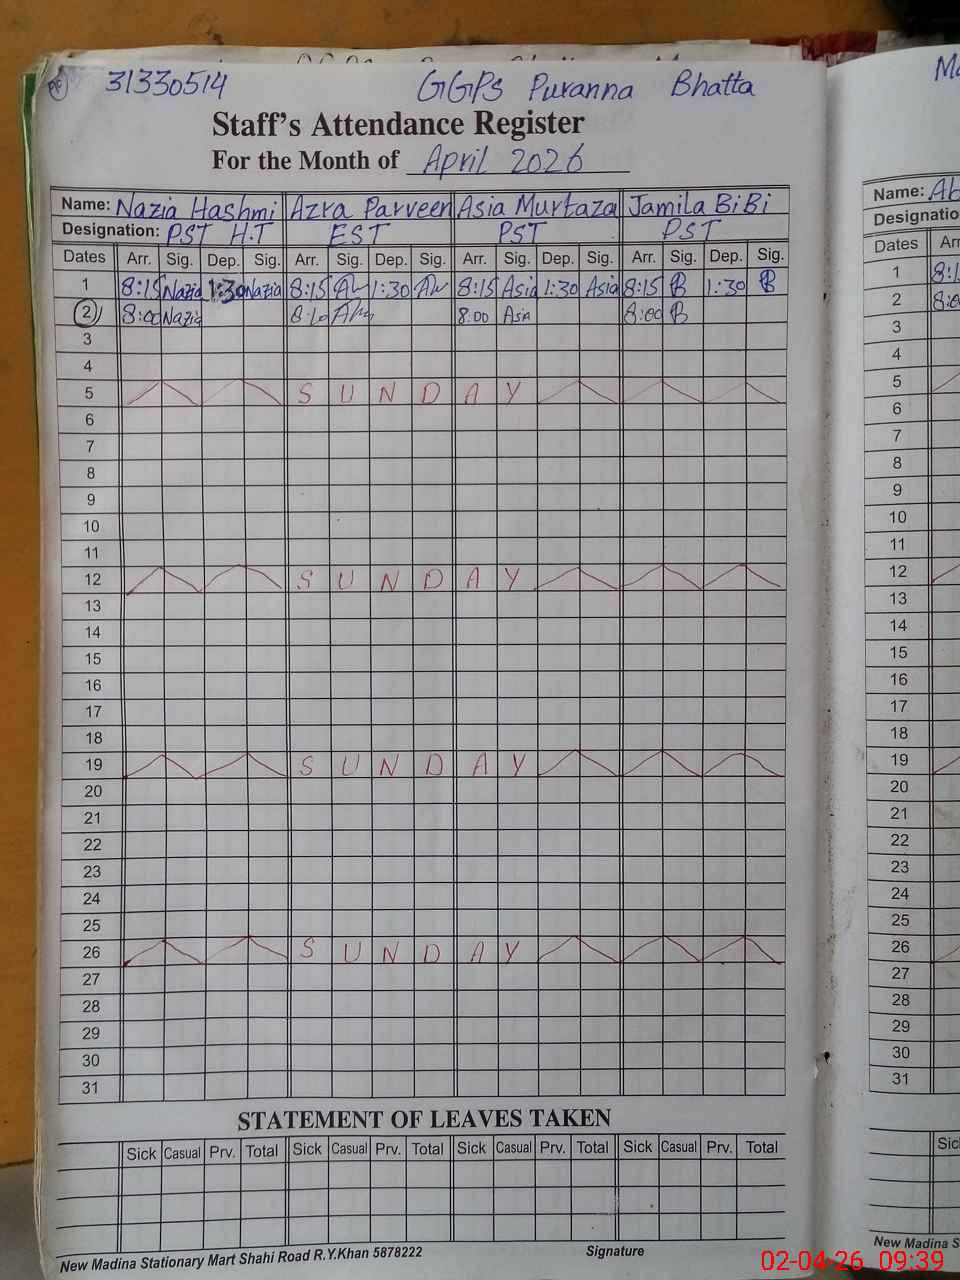 31330514 GGPS Puranna Bhatta
Staff's Attendance Register
For the Month of April 2026
Name: Nazia Hashmi Azra Parveen Asia Murtaza Jamila BiBi
Designation: PST H.T EST PST PST
Dates Arr. Sig. Dep. Sig. Arr. Sig. Dep. Sig. Arr. Sig. Dep. Sig. Arr. Sig. Dep. Sig.
1 8:15 Nazia 1:30 Nazia 8:15 1:30 8:15 Asia 1:30 Asia 8:15 B 1:30 B
2 8:00 Nazia 8:10 8:00 Asia 8:00 B
3
4
5 S U N D A Y
6
7
8
9
10
11
12 S U N D A Y
13
14
15
16
17
18
19 S U N D A Y
20
21
22
23
24
25
26 S U N D A Y
27
28
29
30
31
STATEMENT OF LEAVES TAKEN
Sick Casual Prv. Total Sick Casual Prv. Total Sick Casual Prv. Total Sick Casual Prv. Total
New Madina Stationary Mart Shahi Road R.Y.Khan 5878222 Signature
Name:
Designatio
Dates
1
2
3
4
5
6
7
8
9
10
11
12
13
14
15
16
17
18
19
20
21
22
23
24
25
26
27
28
29
30
31
New Madina S
02-04-26 09:39